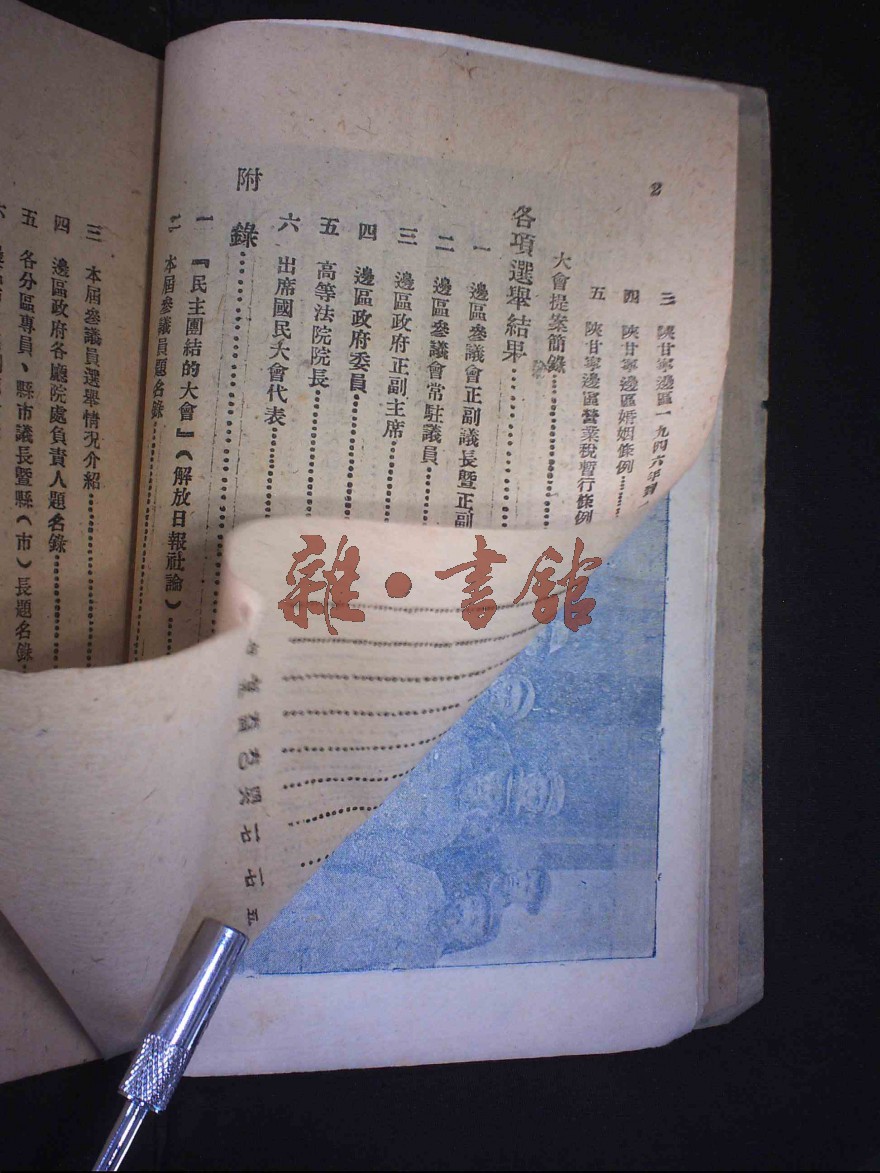 2
三 陝甘寧邊區一九四六年
四 陝甘寧邊區婚姻條例………
五 陝甘寧邊區營業稅暫行條例
大會提案簡錄………
各項選舉結果………
一 邊區參議會正副議長暨正副
二 邊區參議會常駐議員………
三 邊區政府正副主席………
四 邊區政府委員………
五 高等法院院長………
六 出席國民大會代表………
附 錄………
一 『民主團結的大會』(解放日報社論)………
二 本屆參議員題名錄………
三 本屆參議員選舉情況介紹………
四 邊區政府各廳院處負責人題名錄………
五 各分區專員、縣市議長暨縣(市)長題名錄
六
雜·書館